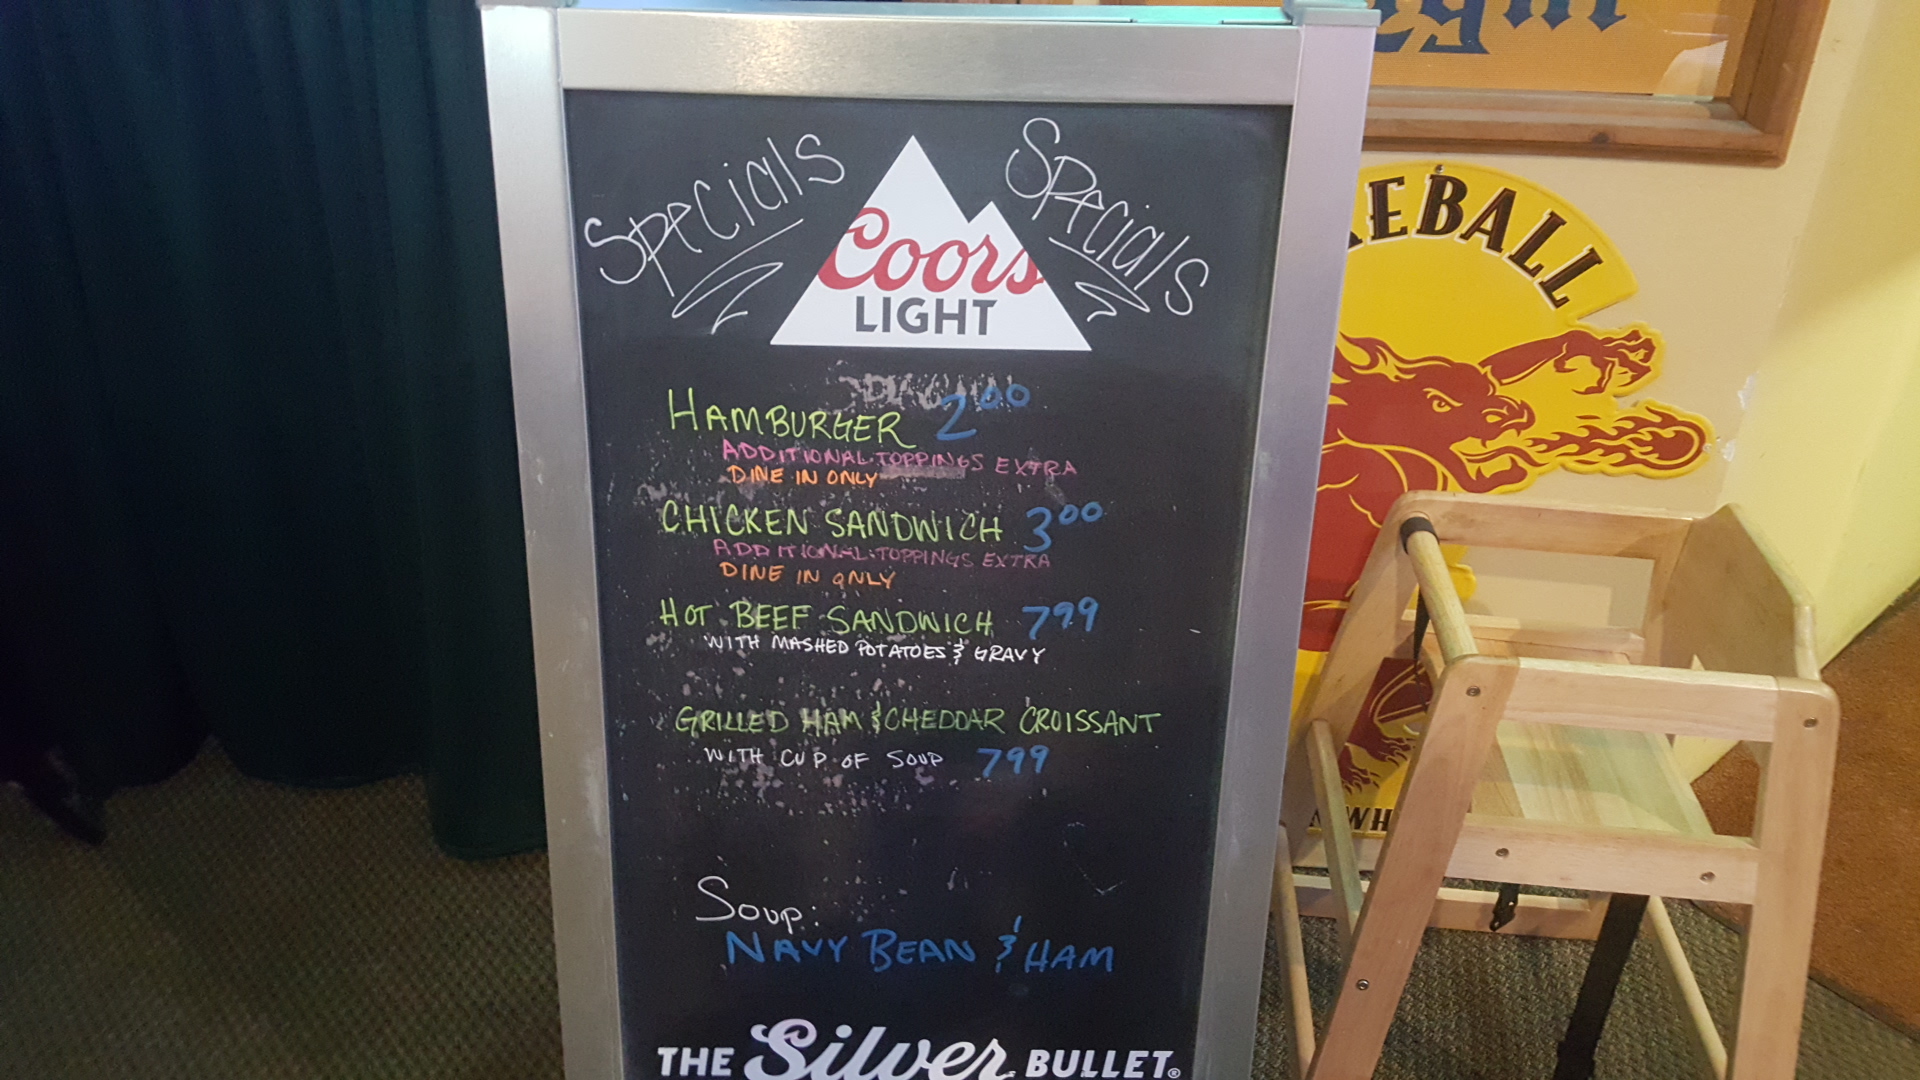 Specials Specials
Coors
LIGHT
HAMBURGER 2.00
ADDITIONAL TOPPINGS EXTRA
DINE IN ONLY
CHICKEN SANDWICH 3.00
ADDITIONAL TOPPINGS EXTRA
DINE IN ONLY
HOT BEEF SANDWICH 7.99
WITH MASHED POTATOES & GRAVY
GRILLED HAM & CHEDDAR CROISSANT
WITH CUP OF SOUP 7.99
Soup:
NAVY BEAN & HAM
THE Silver BULLET®
EBALL